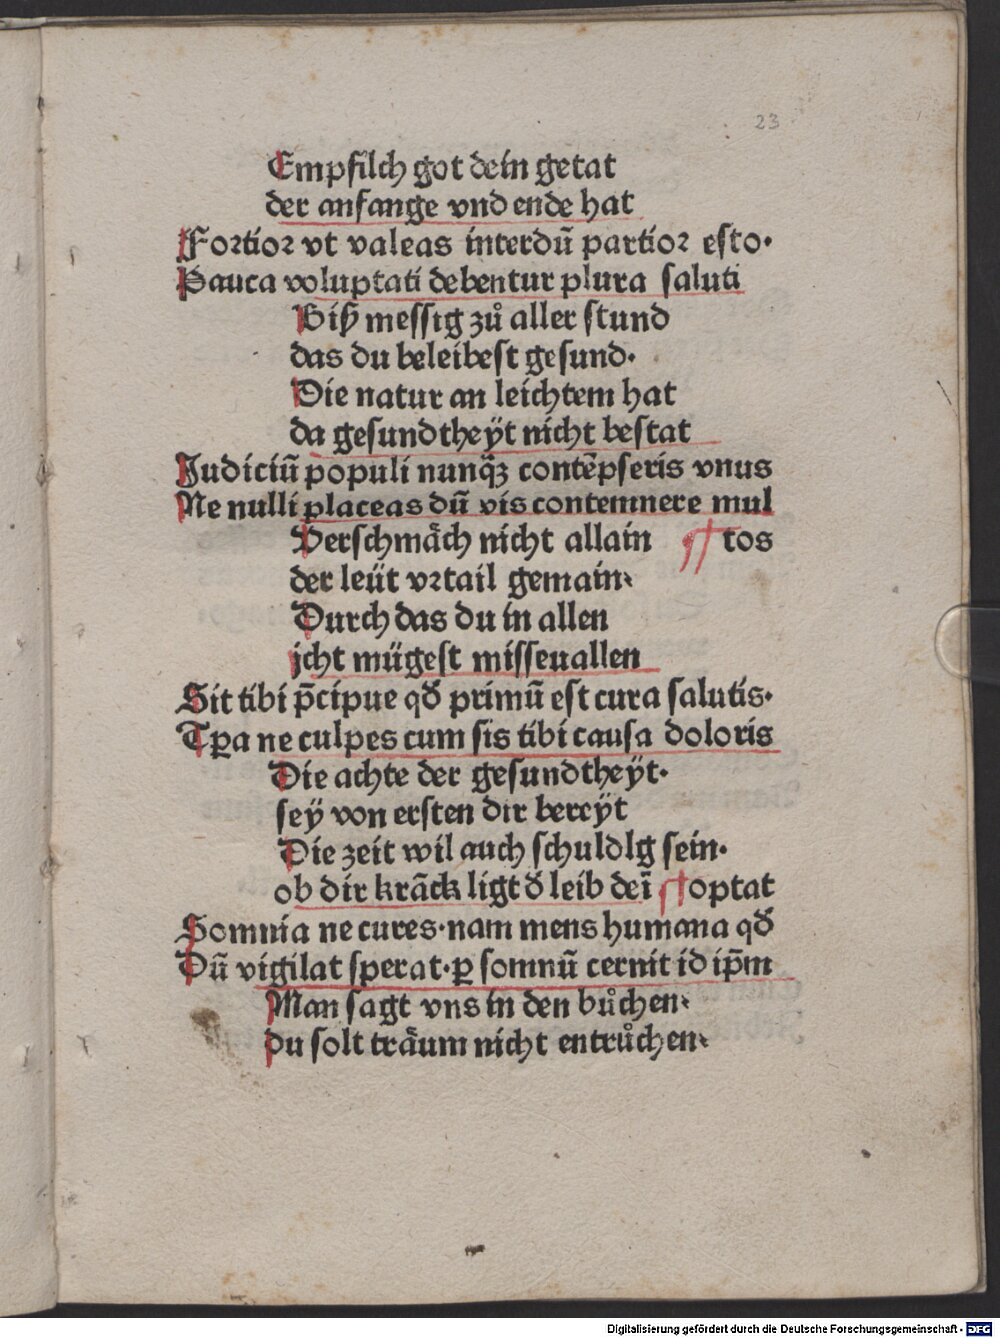 23
Empfilch got dein getat
der anfange vnd ende hat
Fortior vt valeas interdū partior esto·
Pauca voluptati debentur plura saluti
Biß messig zů aller stund
das du beleibest gesund·
Die natur an leichtem hat
da gesundtheÿt nicht bestat
Judiciū populi nunq̄ꝫ contēpseris vnus
Ne nulli placeas dū vis contemnere mul
Verschmäch nicht allain ¶ tos
der leüt vrtail gemain·
Durch das du in allen
jcht mügest misseuallen
Sit tibi p̄cipue qđ primū est cura salutis·
Tꝑa ne culpes cum sis tibi causa doloris
Die achte der gesundtheÿt·
seÿ von ersten dir bereÿt
Die zeit wil auch schuldlg sein·
ob dir kräck ligt đ leib deī ¶ optat
Somnia ne cures·nam mens humana qđ
Dū vigilat sperat·ꝑ somnū cernit id ip̄m
Man sagt vns in den bůchen·
Du solt träum nicht entrůchen·
Digitalisierung gefördert durch die Deutsche Forschungsgemeinschaft - DFG